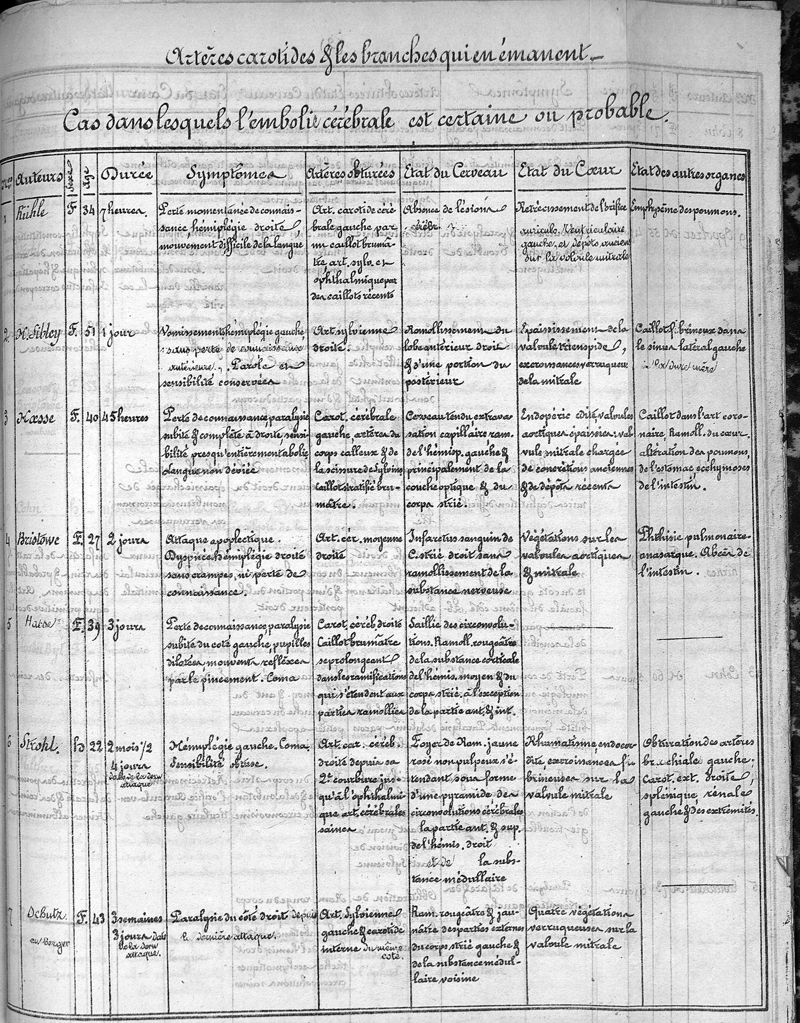 Artères carotides & les branches qui en émanent
Cas dans lesquels l'embolie cérébrale est certaine ou probable.
Nos Auteurs Sexe Age Durée Symptômes Artères obturées Etat du Cerveau Etat du Cœur Etat des autres organes
1 Rühle F 34 7 heures
Perte momentanée de connais-
sance hémiplégie droite,
mouvement difficile de la langue
Art. carotide céré-
brale gauche par
un caillot brunâ-
tre art. sylv. et
ophthalmique par
des caillots récents
Absence de lésions
cérébr
Rétrécissement de l'orifice
auriculo. Ventriculaire
gauche, et dépôts
sur la valvule mitrale
Emphysème des poumons.
2 H. Sibley F. 51 1 jour
Vomissements hémiplégie gauche
sans perte de connaissance
antérieure. Parole et
sensibilité conservées
Art. sylvienne
droite.
Ramollissement du
lobe antérieur droit
& d'une portion du
postérieur
Epaississement de la
valvule tricuspide,
excroissances verruqueus
de la mitrale
Caillot fibrineux dans
le sinus latéral gauche
de la dure mère
3 Hasse F. 40 45 heures
Perte de connaissance, paralysie
subite & complète à droite, sensi-
bilité presqu'entièrement abolie
langue non déviée
Carot. cérébrale
gauche, artères du
corps calleux & de
la scissure de Sylvius
caillot stratifié bru-
nâtre.
Cerveau tendu extrava-
sation capillaire ram.
de l'hémisp. gauche &
principalement de la
couche optique & du
corps strié.
Endopéricardite, valvules
aortiques épaissies. val-
vule mitrale chargée
de concrétions anciennes
& de dépôts récents
Caillot dans l'art coro-
naire, Ramoll. du cœur,
altération des poumons,
de l'estomac ecchymoses
de l'intestin.
4 Bristowe F. 27 2 jours
Attaque apoplectique.
Dyspnée, hémiplégie droite
sans crampes, ni perte de
connaissance.
Art. cér. moyenne
droite
Infarctus sanguin du
C. strié droit sans
ramollissement de la
substance nerveuse
Végétations sur les
valvules aortiques
& mitrale
Phthisie pulmonaire
anasarque. Abcès de
l'intestin.
5 Hasse F. 39 3 jours
Perte de connaissance, paralysie
subite du coté gauche, pupilles
dilatées, mouvemts refléxes
par le pincement. Coma
Carot. céréb droite
Caillot brunâtre
se prolongeant
dans les ramifications
qui s'étendent aux
parties ramollies
Saillie des circonvolu-
tions. Ramoll. rougeâtre
de la substance corticale
de l'hémis. moyen & du
corps strié, à l'exception
de la partie ant. & int.
6 Strohl. h 22 2 mois 1/2
4 jours
de la dern
attaque
Hémiplégie gauche. Coma,
Sensibilité obtuse.
Art. car. céréb.
droite depuis sa
2e courbure jus-
qu'à l'ophthalmi-
que art. cérébrales
saines
Foyer de Ram. jaune
rosé non pulpeux s'é-
tendant sous forme
d'une pyramide des
circonvolutions cérébrales
la partie ant. & sup
de l'hémis. droit
et de la subs-
tance médullaire
Rhumatisme, endocar-
dite excroissances fi-
brineuses sur la
valvule mitrale
Obturation des artères
brachiale gauche,
Carot. ext. droite,
splénique rénale
gauche & des extrémités.
7 F. 43 3 semaines
3 jours
de la dern
attaque.
Paralysie du côté droit depuis
la dernière attaque.
Art. Sylvienne
gauche & carotide
interne du même
coté.
Ram. rougeâtre & jau-
nâtre des parties externes
du corps strié gauche &
de la substance médul-
laire voisine
Quatre végétations
verruqueuses sur la
valvule mitrale